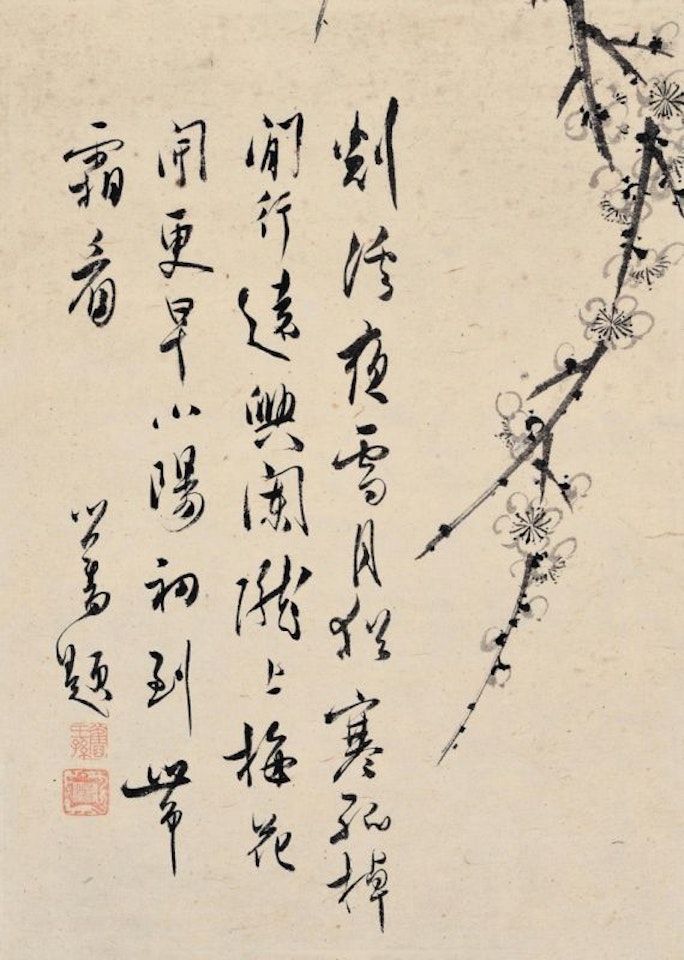 剡溪夜雪月猶寒孤棹
閒行遠興闌隴上梅花
開更早小陽初到帶
霜看
心畬題
舊王孫